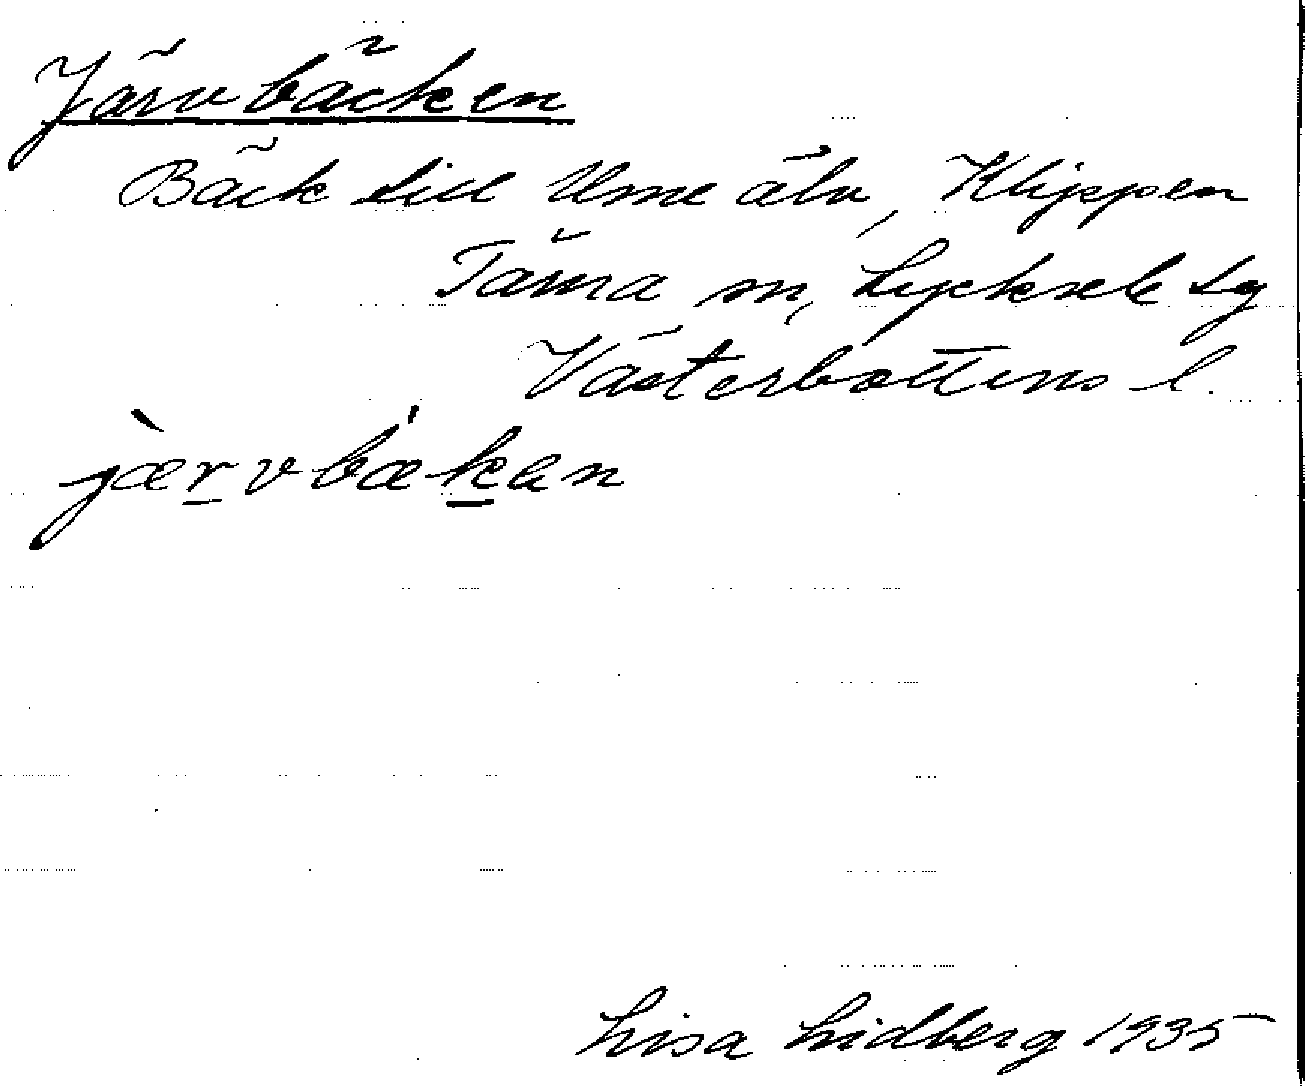 Järvbäcken
Bäck till Ume älv, Klippen
Tärna sn, Lycksele lg
Västerbottens l.
jæ̀rvbæ'kan
Lisa Lidberg 1935